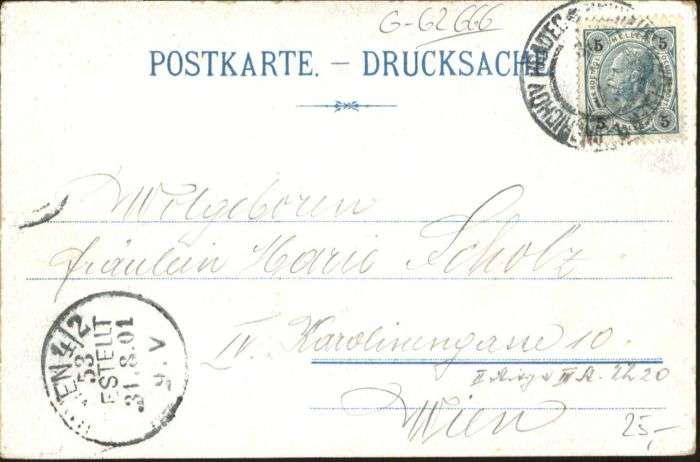 G-62666
POSTKARTE. – DRUCKSACHE
5 5
5 5
HRADEC
Wolgeboren
Fräulein Marie Scholz
IV. Karolinengasse 10.
2220
Wien
25,-
WIEN 4/2
53
BESTELLT
31.8.01
9.V